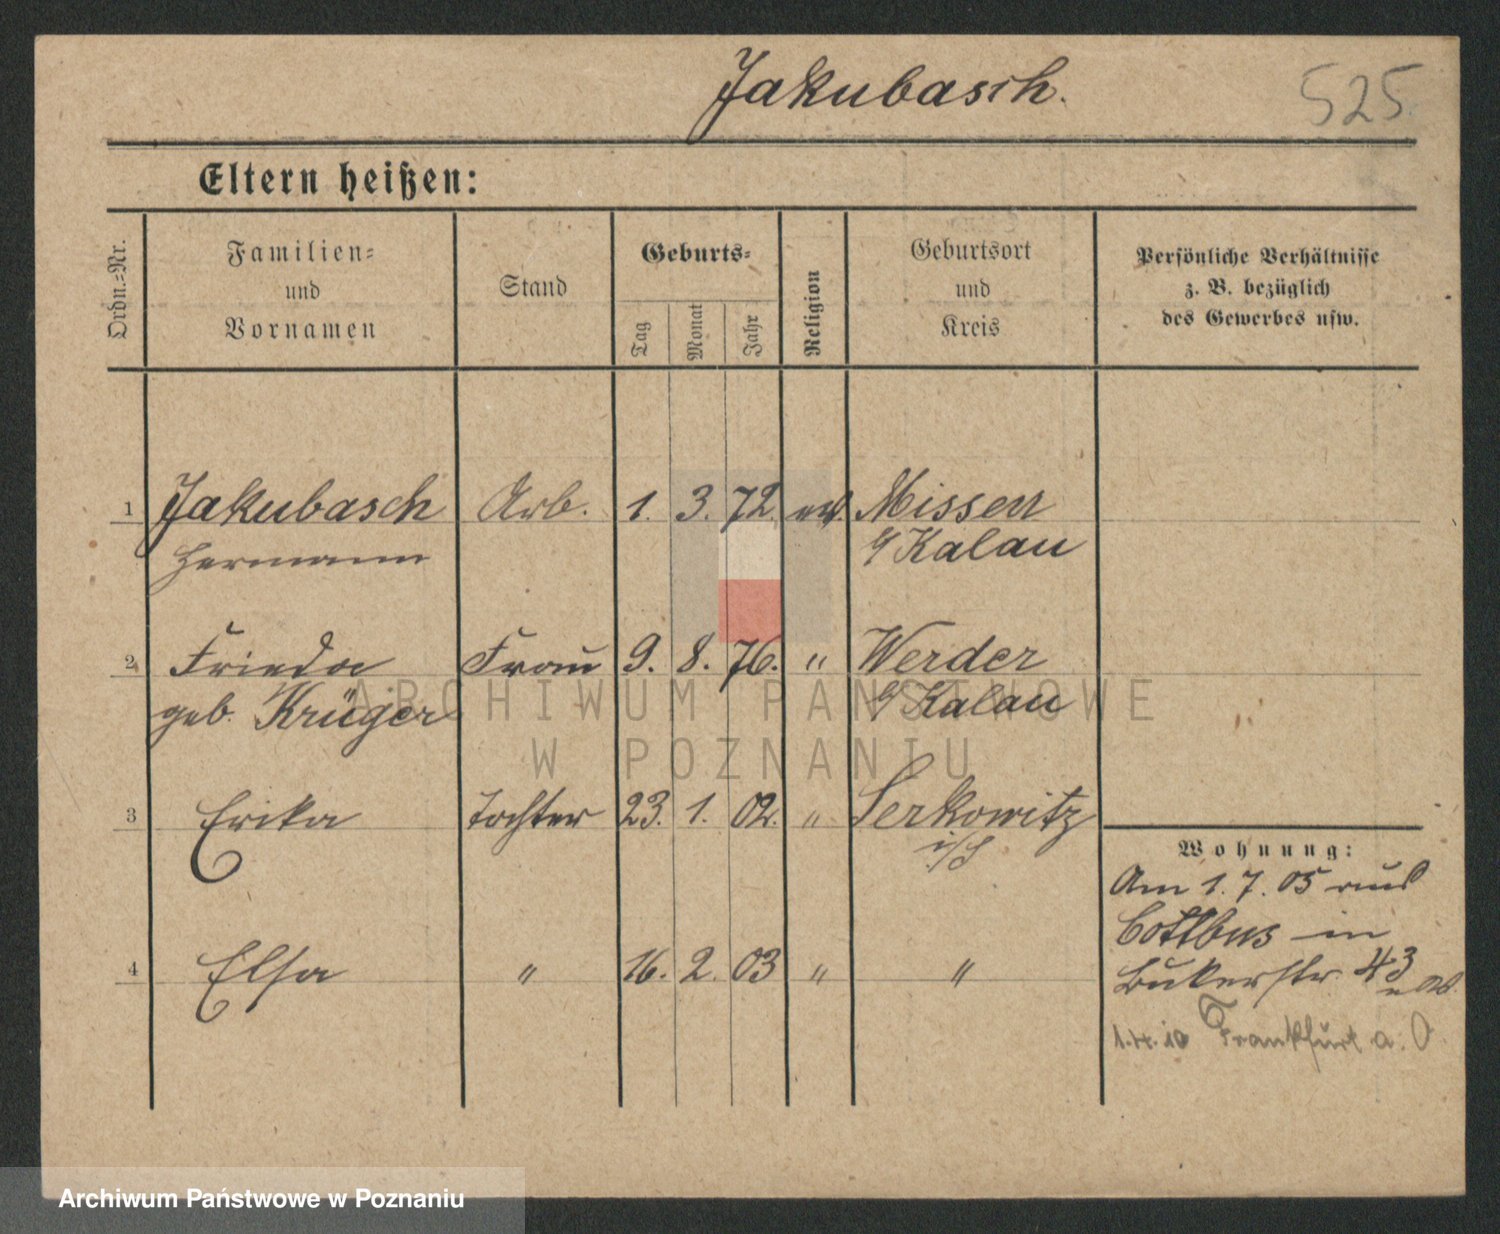 Jakubasch.
525.
Eltern heißen:
Ordn.=Nr.
Familien=
und
Vornamen
Stand
Geburts=
Tag
Monat
Jahr
Religion
Geburtsort
und
Kreis
Persönliche Verhältnisse
z. B. bezüglich
des Gewerbes usw.
1 Jakubasch Arb. 1. 3. 72. ev. Missen
Hermann Kalau
2 Frieda Frau 9. 8. 76. " Werder
geb. Krüger Kalau
3 Erika Tochter 23. 1. 02. " Serkowitz
i/S
4 Elsa " 16. 2. 03 " "
Wohnung:
Am 1. 7. 05 aus
Cottbus in
Bukerstr. 43
1.4.10 Frankfurt a. O.
ARCHIWUM PAŃSTWOWE
W POZNANIU
Archiwum Państwowe w Poznaniu